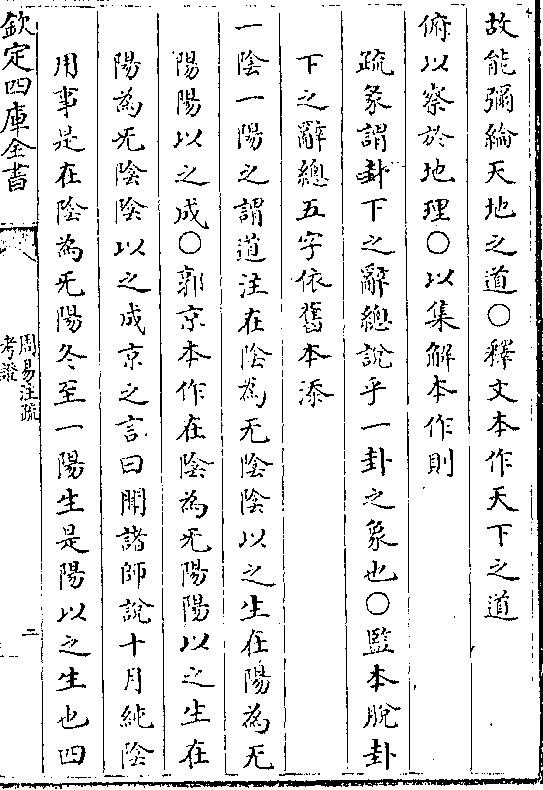 故能彌綸天地之道○釋文本作天下之道
俯以察於地理○以集解本作則
疏彖謂卦下之辭總說乎一卦之象也○監本脫卦
下之辭總五字依舊本添
一陰一陽之謂道注在陰為无陰陰以之生在陽為无
陽陽以之成○郭京本作在陰為旡陽陽以之生在
陽為旡陰陰以之成京之言曰聞諸師說十月純陰
用事是在陰為旡陽冬至一陽生是陽以之生也四
欽定四庫全書
周易注疏
考證
二